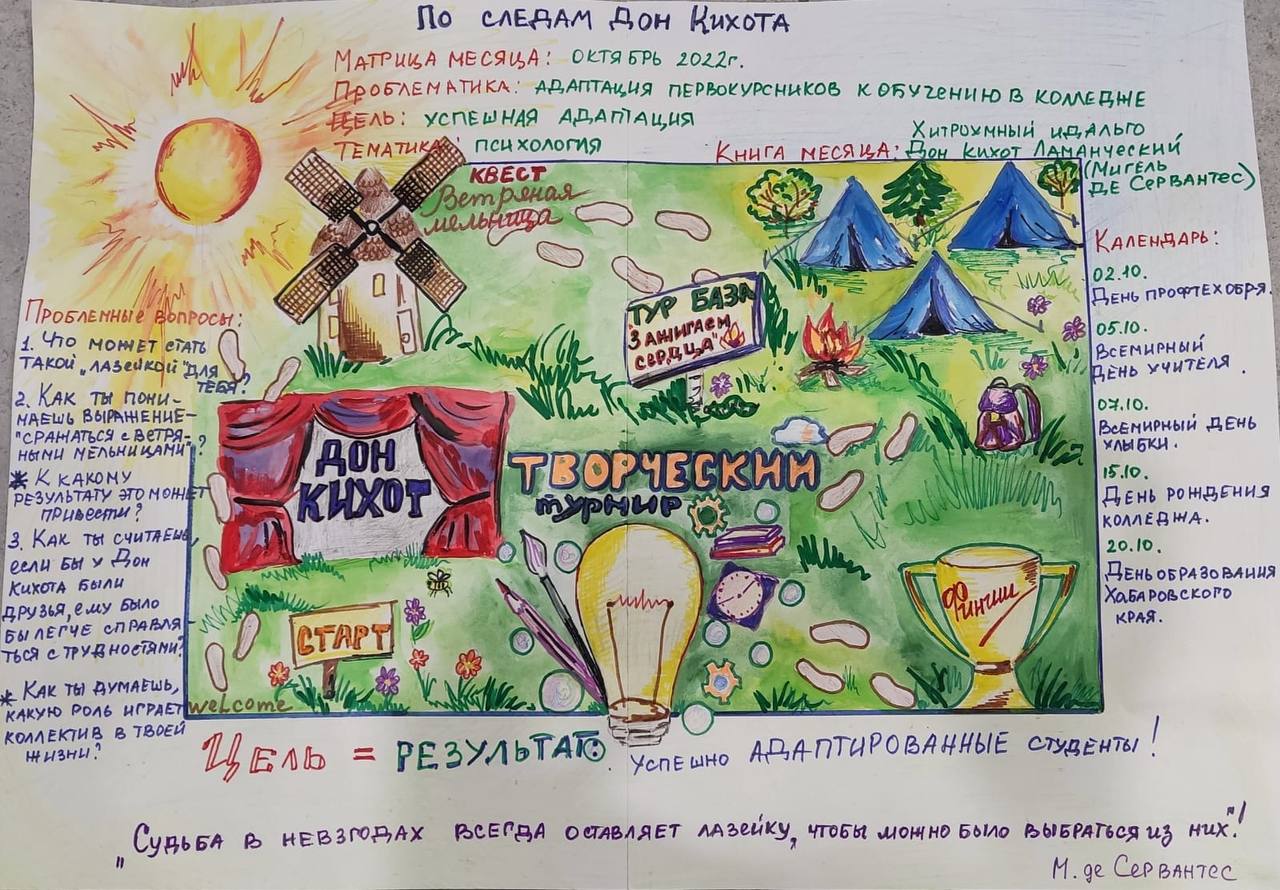 По следам Дон Кихота
Матрица месяца: октябрь 2022г.
Проблематика: адаптация первокурсников к обучению в колледже
Цель: успешная адаптация
Тематика: психология
Книга месяца: Хитроумный идальго
Дон Кихот Ламанческий
(Мигель
де Сервантес)
Квест
Ветряная
мельница
Тур база
"Зажигаем
сердца"
Календарь:
02.10.
День профтехобр-я.
05.10.
Всемирный
День учителя.
07.10.
Всемирный день
улыбки.
15.10.
День рождения
колледжа.
20.10.
День образования
Хабаровского
края.
Проблемные вопросы:
1. Что может стать
такой "лазейкой" для
тебя?
2. Как ты пони-
маешь выражение-
"сражаться с ветря-
ными мельницами"?
* К какому
результату это может
привести?
3. Как ты считаешь
если бы у Дон
Кихота были
друзья, ему было
бы легче справля
ться с трудностями?
* Как ты думаешь,
какую роль играет
коллектив в твоей
жизни?
Дон
Кихот
Творческий
турнир
Старт
welcome
Финиш
Цель = результат: успешно адаптированные студенты!
„Судьба в невзгодах всегда оставляет лазейку, чтобы можно было выбраться из них"!
М. де Сервантес